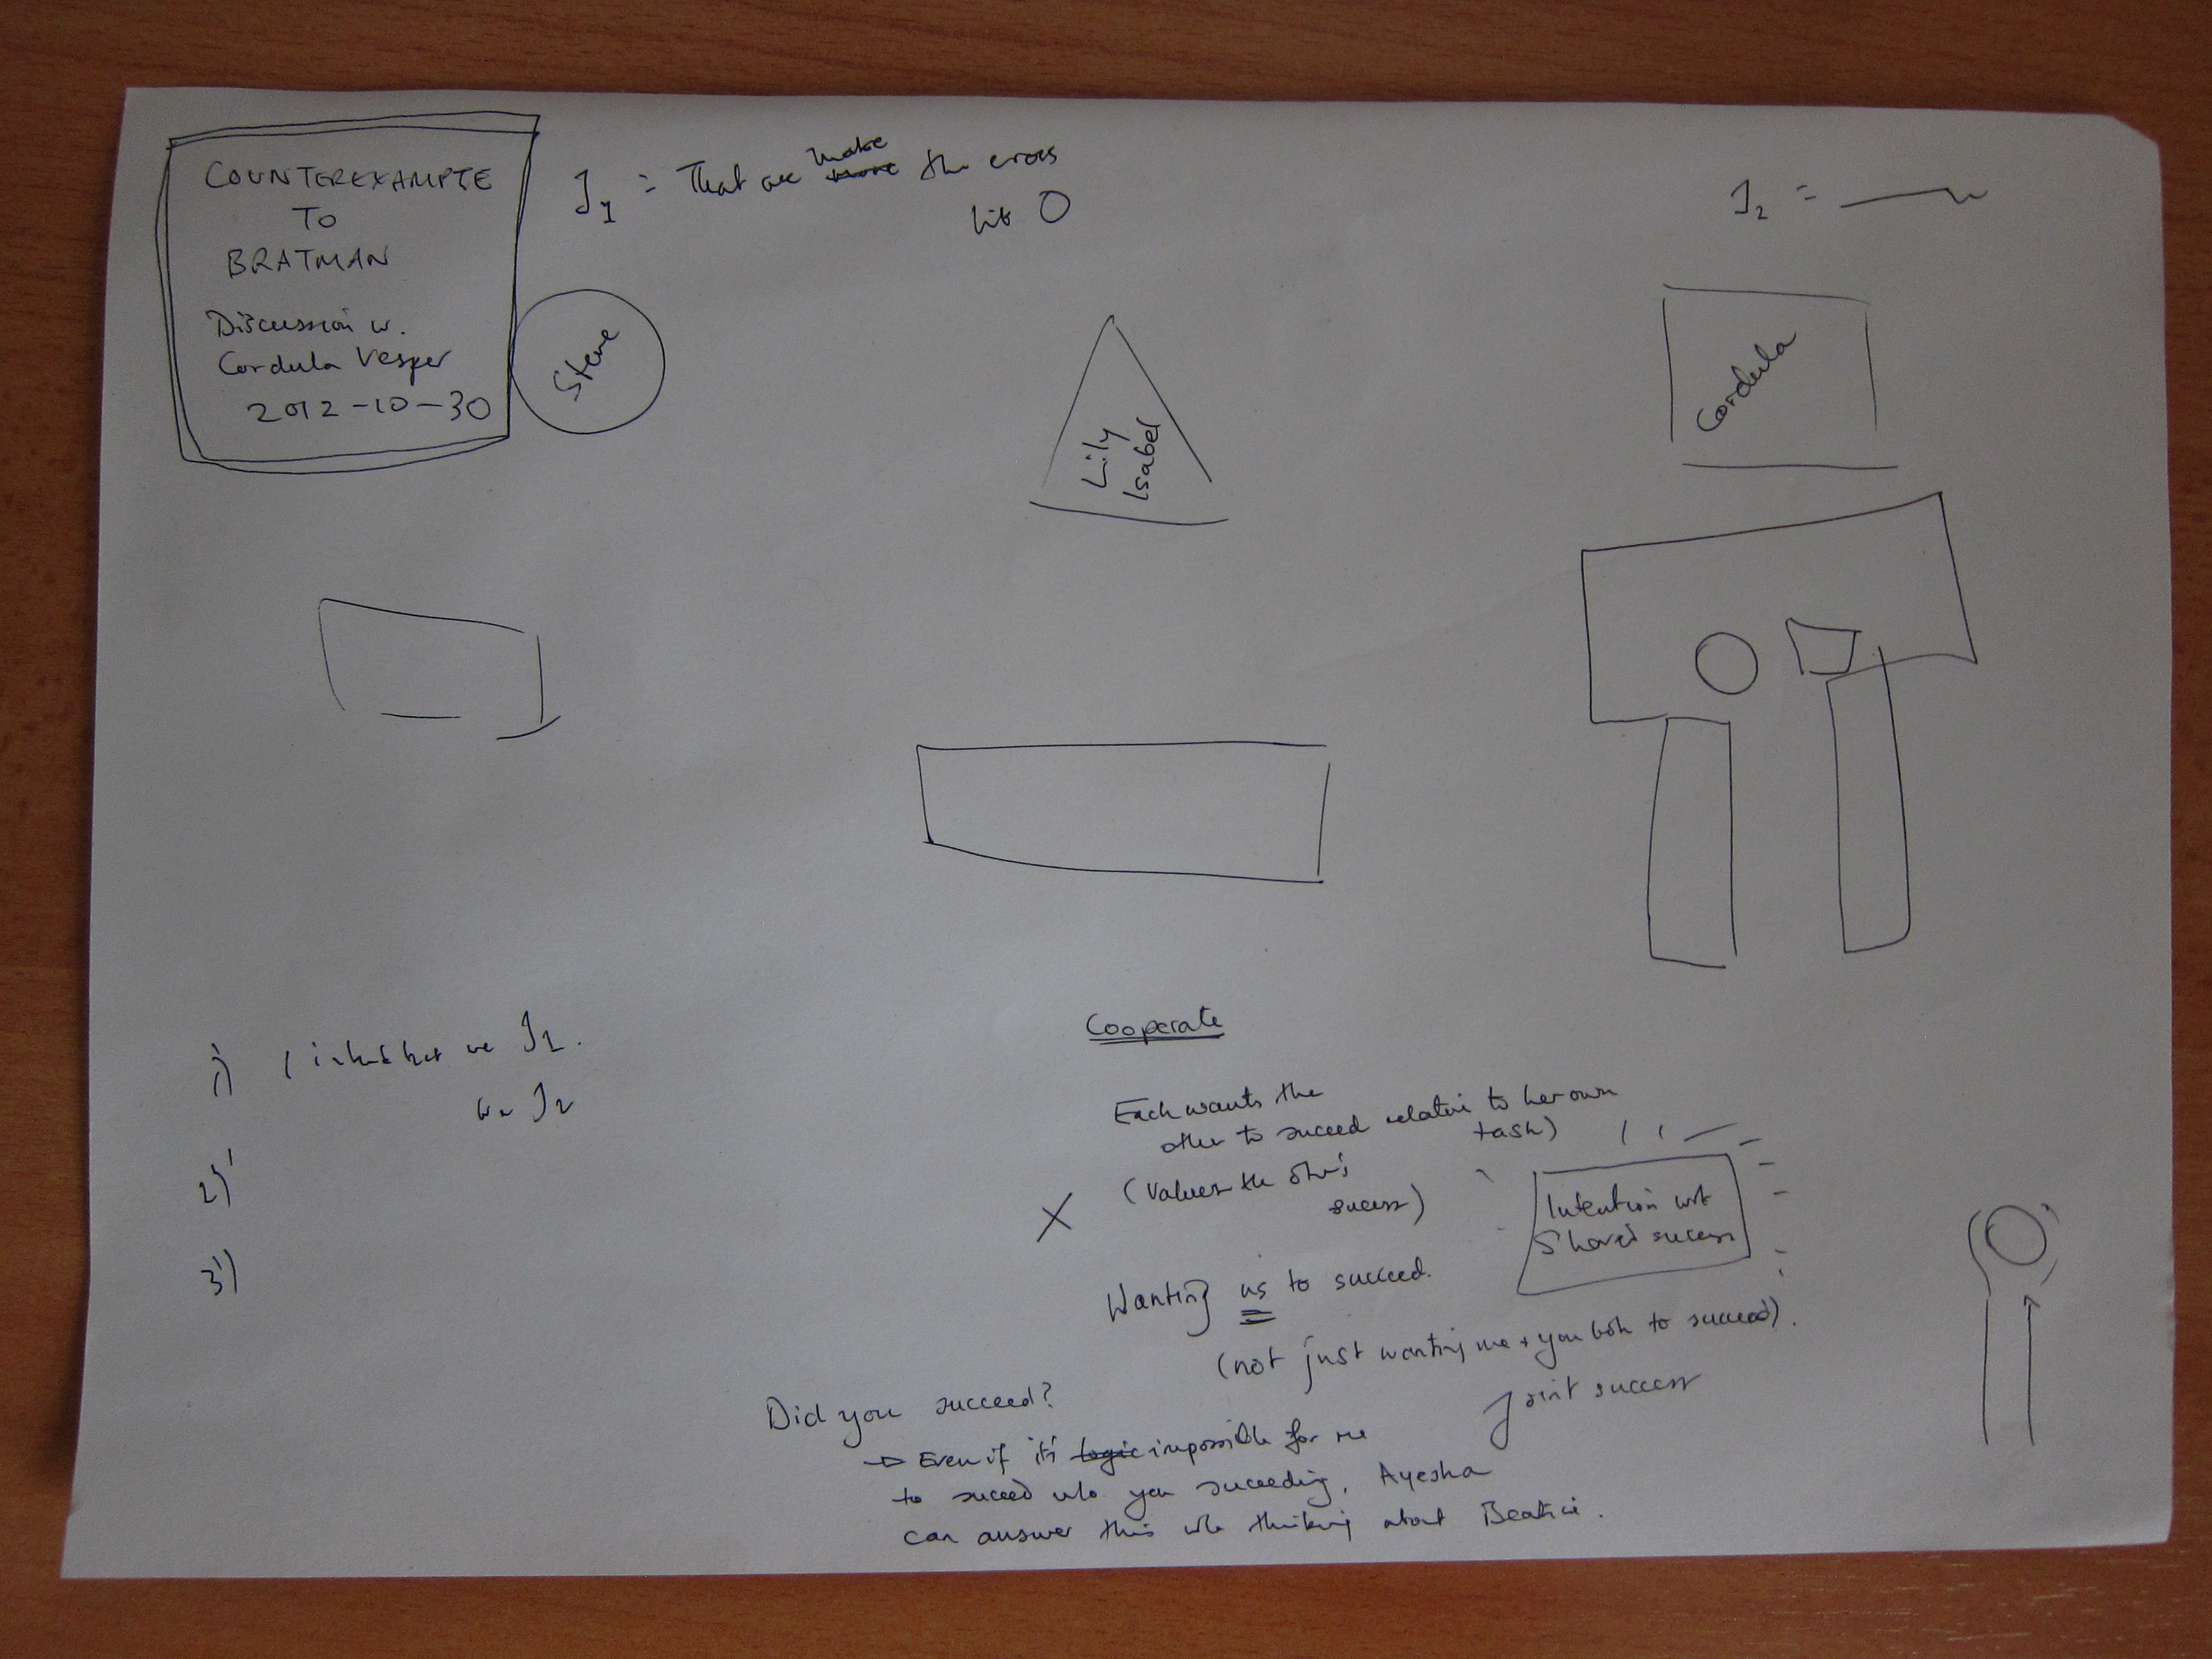 COUNTEREXAMPTE
TO
BRATMAN
Discussion w.
Cordula Vesper
2012-10-30
J1 = That we make
more the cross
hit O
J2 =
Steve
Lily
Isabel
Cordula
1) I that we J1.
we J2
2)
3)
Cooperate
Each wants the
other to succeed relative to her own
task)
(Values the other's
sucess)
X
Intention wrt
Shared sucess
Wanting us to succeed.
(not just wanting me + you both to succeed).
Joint success
Did you succeed?
→ Even if it's logic impossible for me
to succeed w/o you succeeding, Ayesha
can answer this w/o thinking about Beatrice.